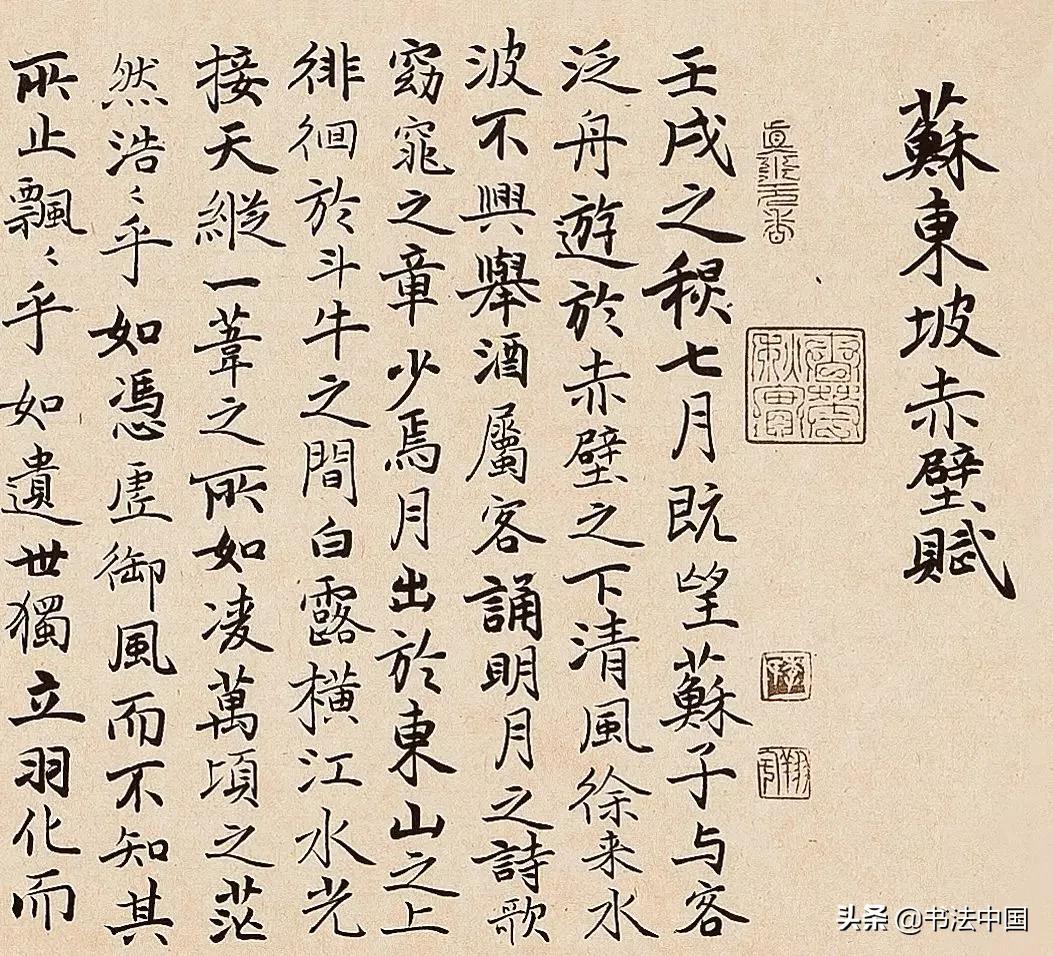 蘇東坡赤壁賦
壬戌之秋七月既望蘇子与客
泛舟遊於赤壁之下清風徐来水
波不興舉酒屬客誦明月之詩歌
窈窕之章少焉月出於東山之上
徘徊於斗牛之間白露橫江水光
接天縱一葦之所如凌萬頃之茫
然浩〻乎如憑虛御風而不知其
所止飄〻乎如遺世獨立羽化而
头条 @书法中国